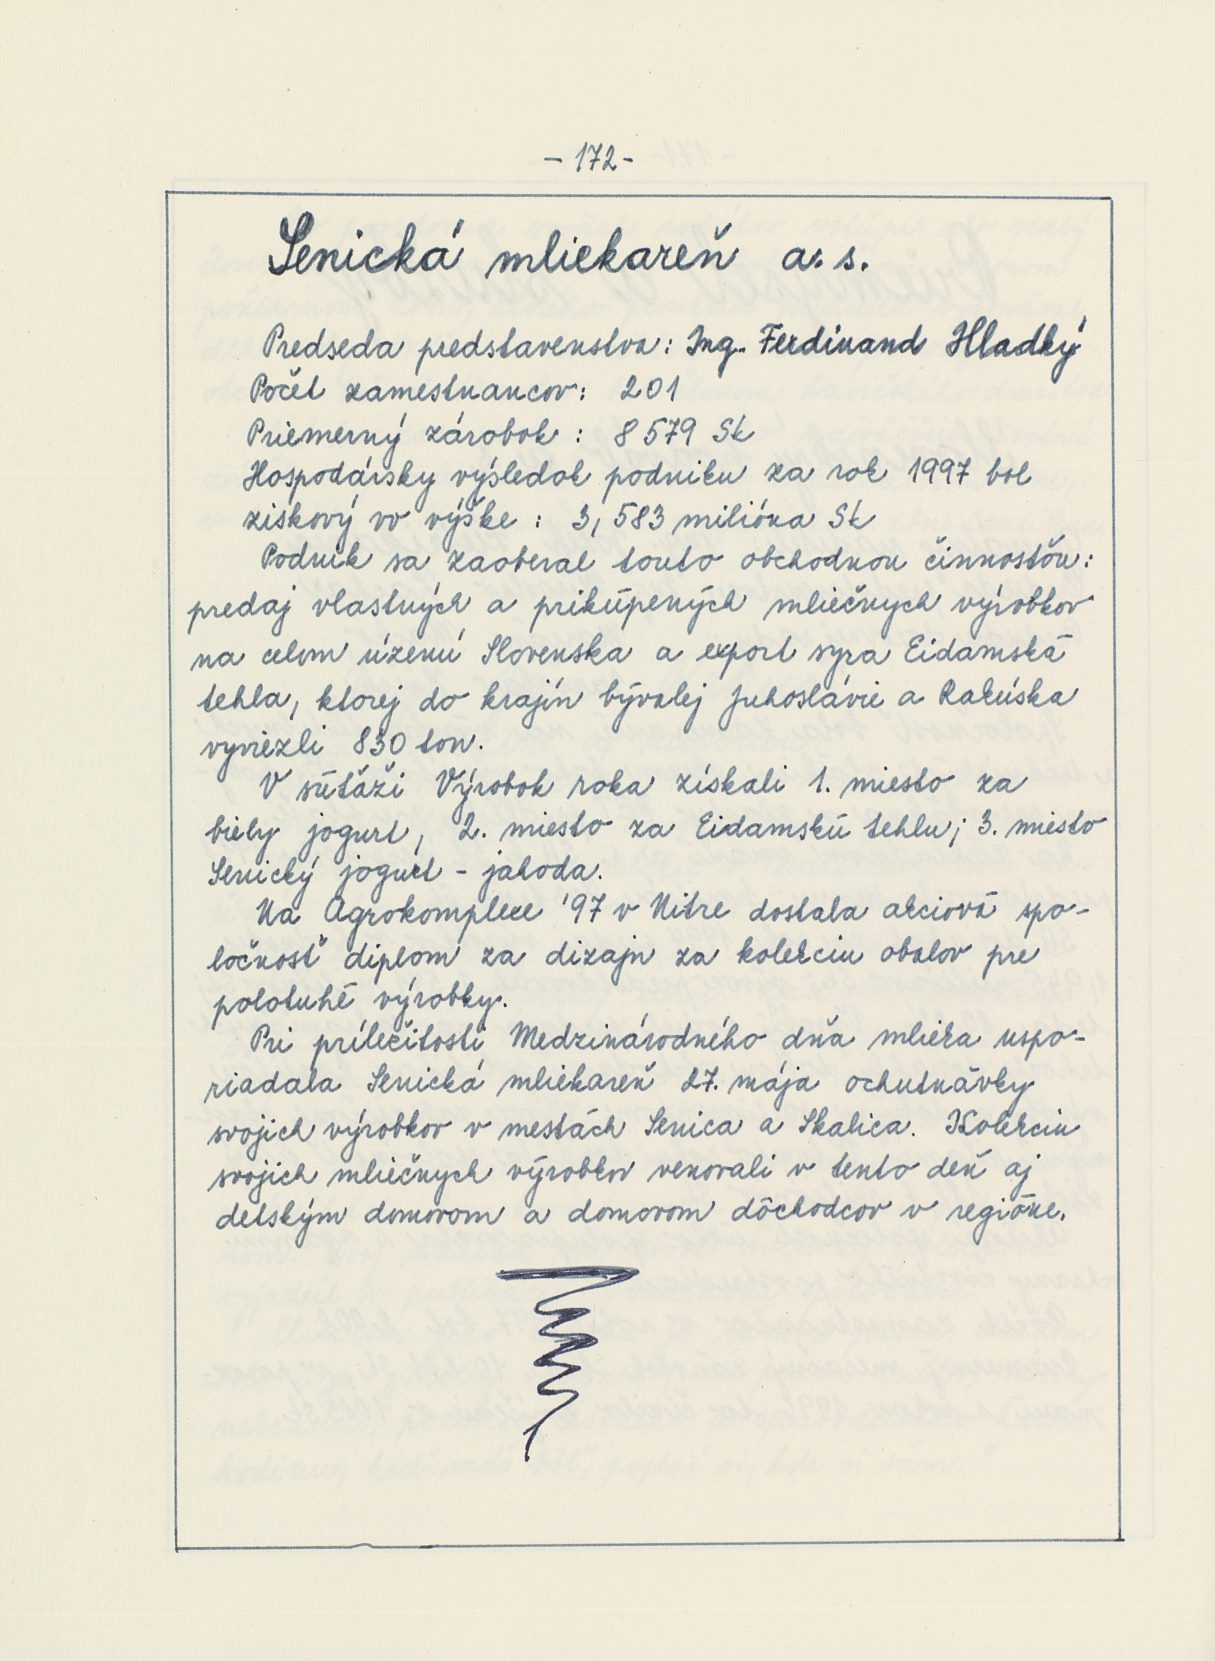 - 172 -
Senická mliekareň a. s.
Predseda predstavenstva: Ing. Ferdinand Hladký
Počet zamestnancov: 201
Priemerný zárobok : 8 579 Sk
Hospodársky výsledok podniku za rok 1997 bol
ziskový vo výške : 3,583 milióna Sk
Podnik sa zaoberal touto obchodnou činnosťou:
predaj vlastných a prikúpených mliečnych výrobkov
na celom území Slovenska a export syra Eidamská
tehla, ktorej do krajín bývalej Juhoslávie a Rakúska
vyviezli 830 ton.
V súťaži Výrobok roka získali 1. miesto za
biely jogurt, 2. miesto za Eidamskú tehlu; 3. miesto
Senický jogurt - jahoda.
Na Agrokomplexe '97 v Nitre dostala akciová spo-
ločnosť diplom za dizajn za kolekciu obalov pre
polotuhé výrobky.
Pri príležitosti Medzinárodného dňa mlieka uspo-
riadala Senická mliekareň 27. mája ochutnávky
svojich výrobkov v mestách Senica a Skalica. Kolekciu
svojich mliečnych výrobkov venovali v tento deň aj
detským domovom a domovom dôchodcov v regióne.